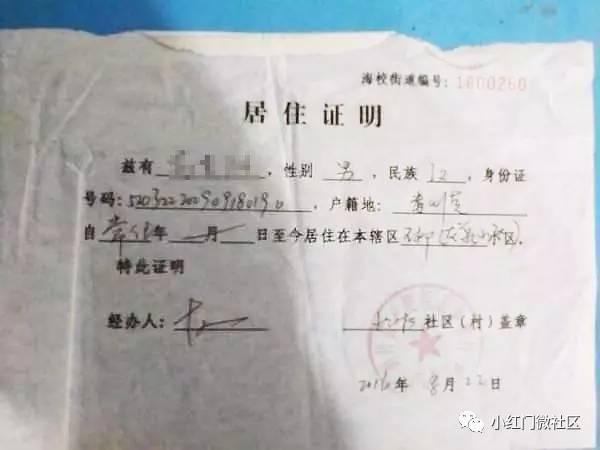 海校街道编号：1600260
居住证明
兹有，性别 男，民族 汉，身份证
号码：520322200909180190，户籍地：贵州省
自 常住 年 — 月 — 日至今居住在本辖区
特此证明
经办人： 社区（村）盖章
2016年8月22日
小红门微社区